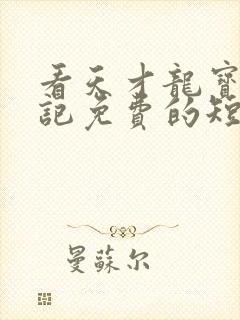 看天才龍寶
記免費的短
曼蘇尔